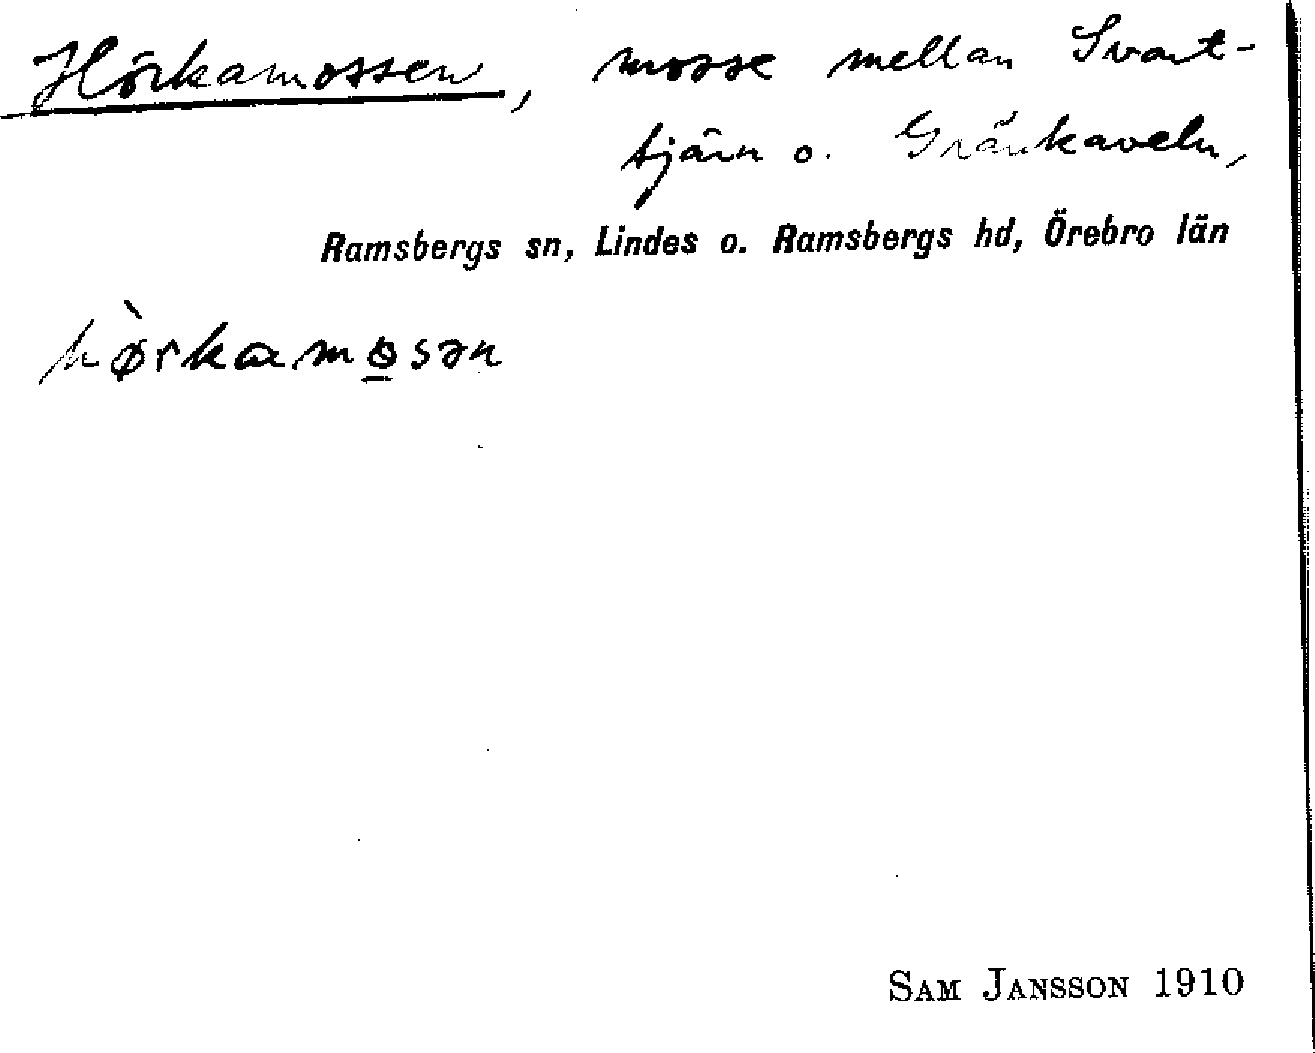 Hörkamossen, mosse mellan Svart-
tjärn o. Gränkaveln,
Ramsbergs sn, Lindes o. Ramsbergs hd, Örebro län
hø̀rkamo̲sən
SAM JANSSON 1910